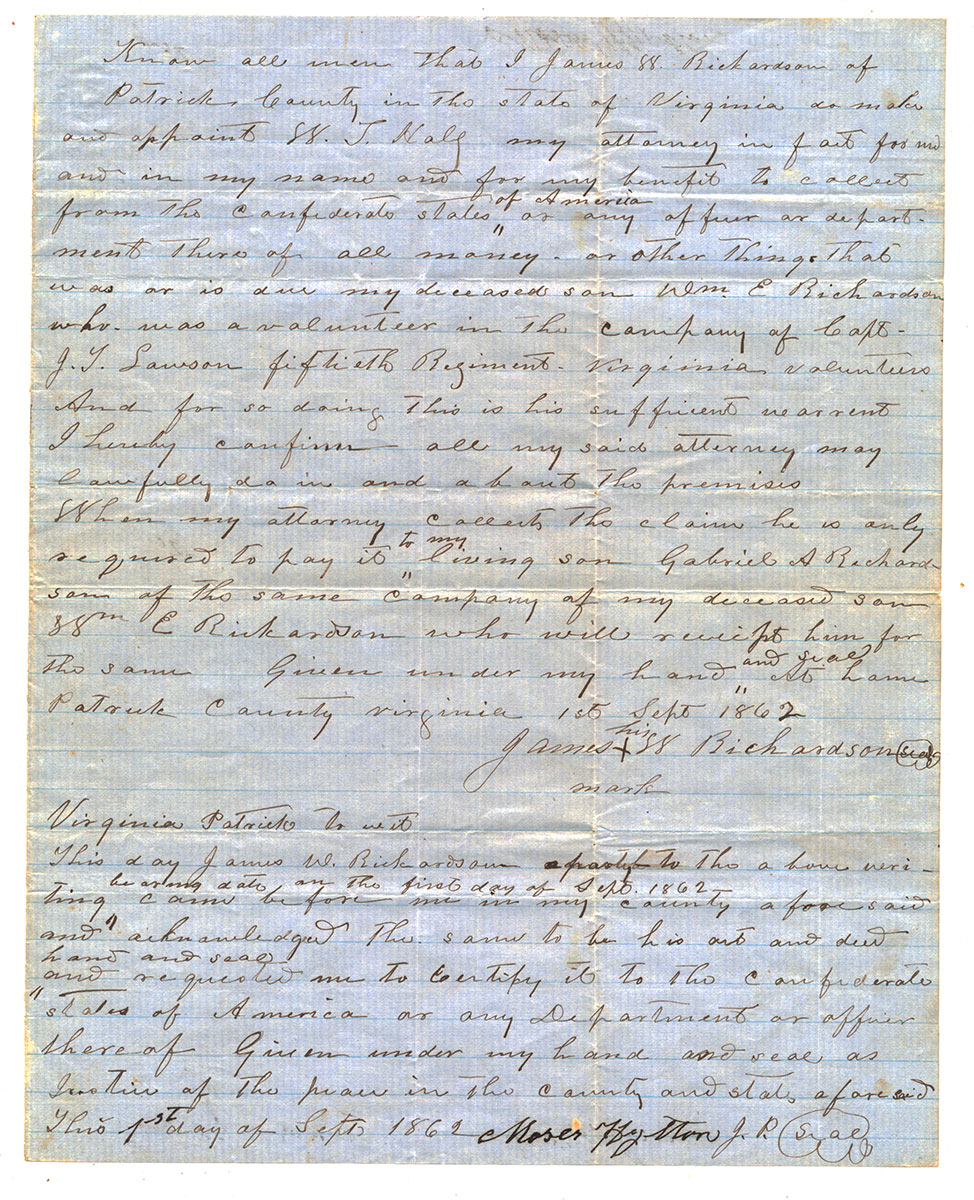 Know all men that I James W. Richardson of
Patrick County in the state of Virginia do make
and appoint W. T. my attorney in fact for me
and in my name and for my benefit to collect
of America
from the Confederate states " or any officer or depart-
ment there of all money - or other things that
was or is due my deceased son Wm. E Richardson
who - was a volunteer in the company of Capt-
J. T. Lawson fiftieth Regiment - Virginia volunteers
And for so doing This is his sufficent warrent
I hereby confirm all my said attorney may
lawfully do in and about the premises
When my attorney collects the claim he is only
to my
required to pay it " living son Gabriel A Richard
son of the same company of my deceased son
Wm E Rickardson who will receipt him for
and seal
the same Given under my hand " At home
Patrick County virginia 1st Sept 1862
his
James + W Richardson seal
mark
Virginia Patrick to wit
This day James W. Richardson a party to the above wri-
bearing date on the first day of Sept. 1862
ting came before me in my county afore said
and " acknowledged the same to be his act and deed
hand and seal
and requested me to certify it to the confederate
" states of America or any Department or officer
there of Given under my hand and seal as
Justice of the peace in the county and state afore said
This 1st day of Sept 1862 Moses Hylton J. P. Seal